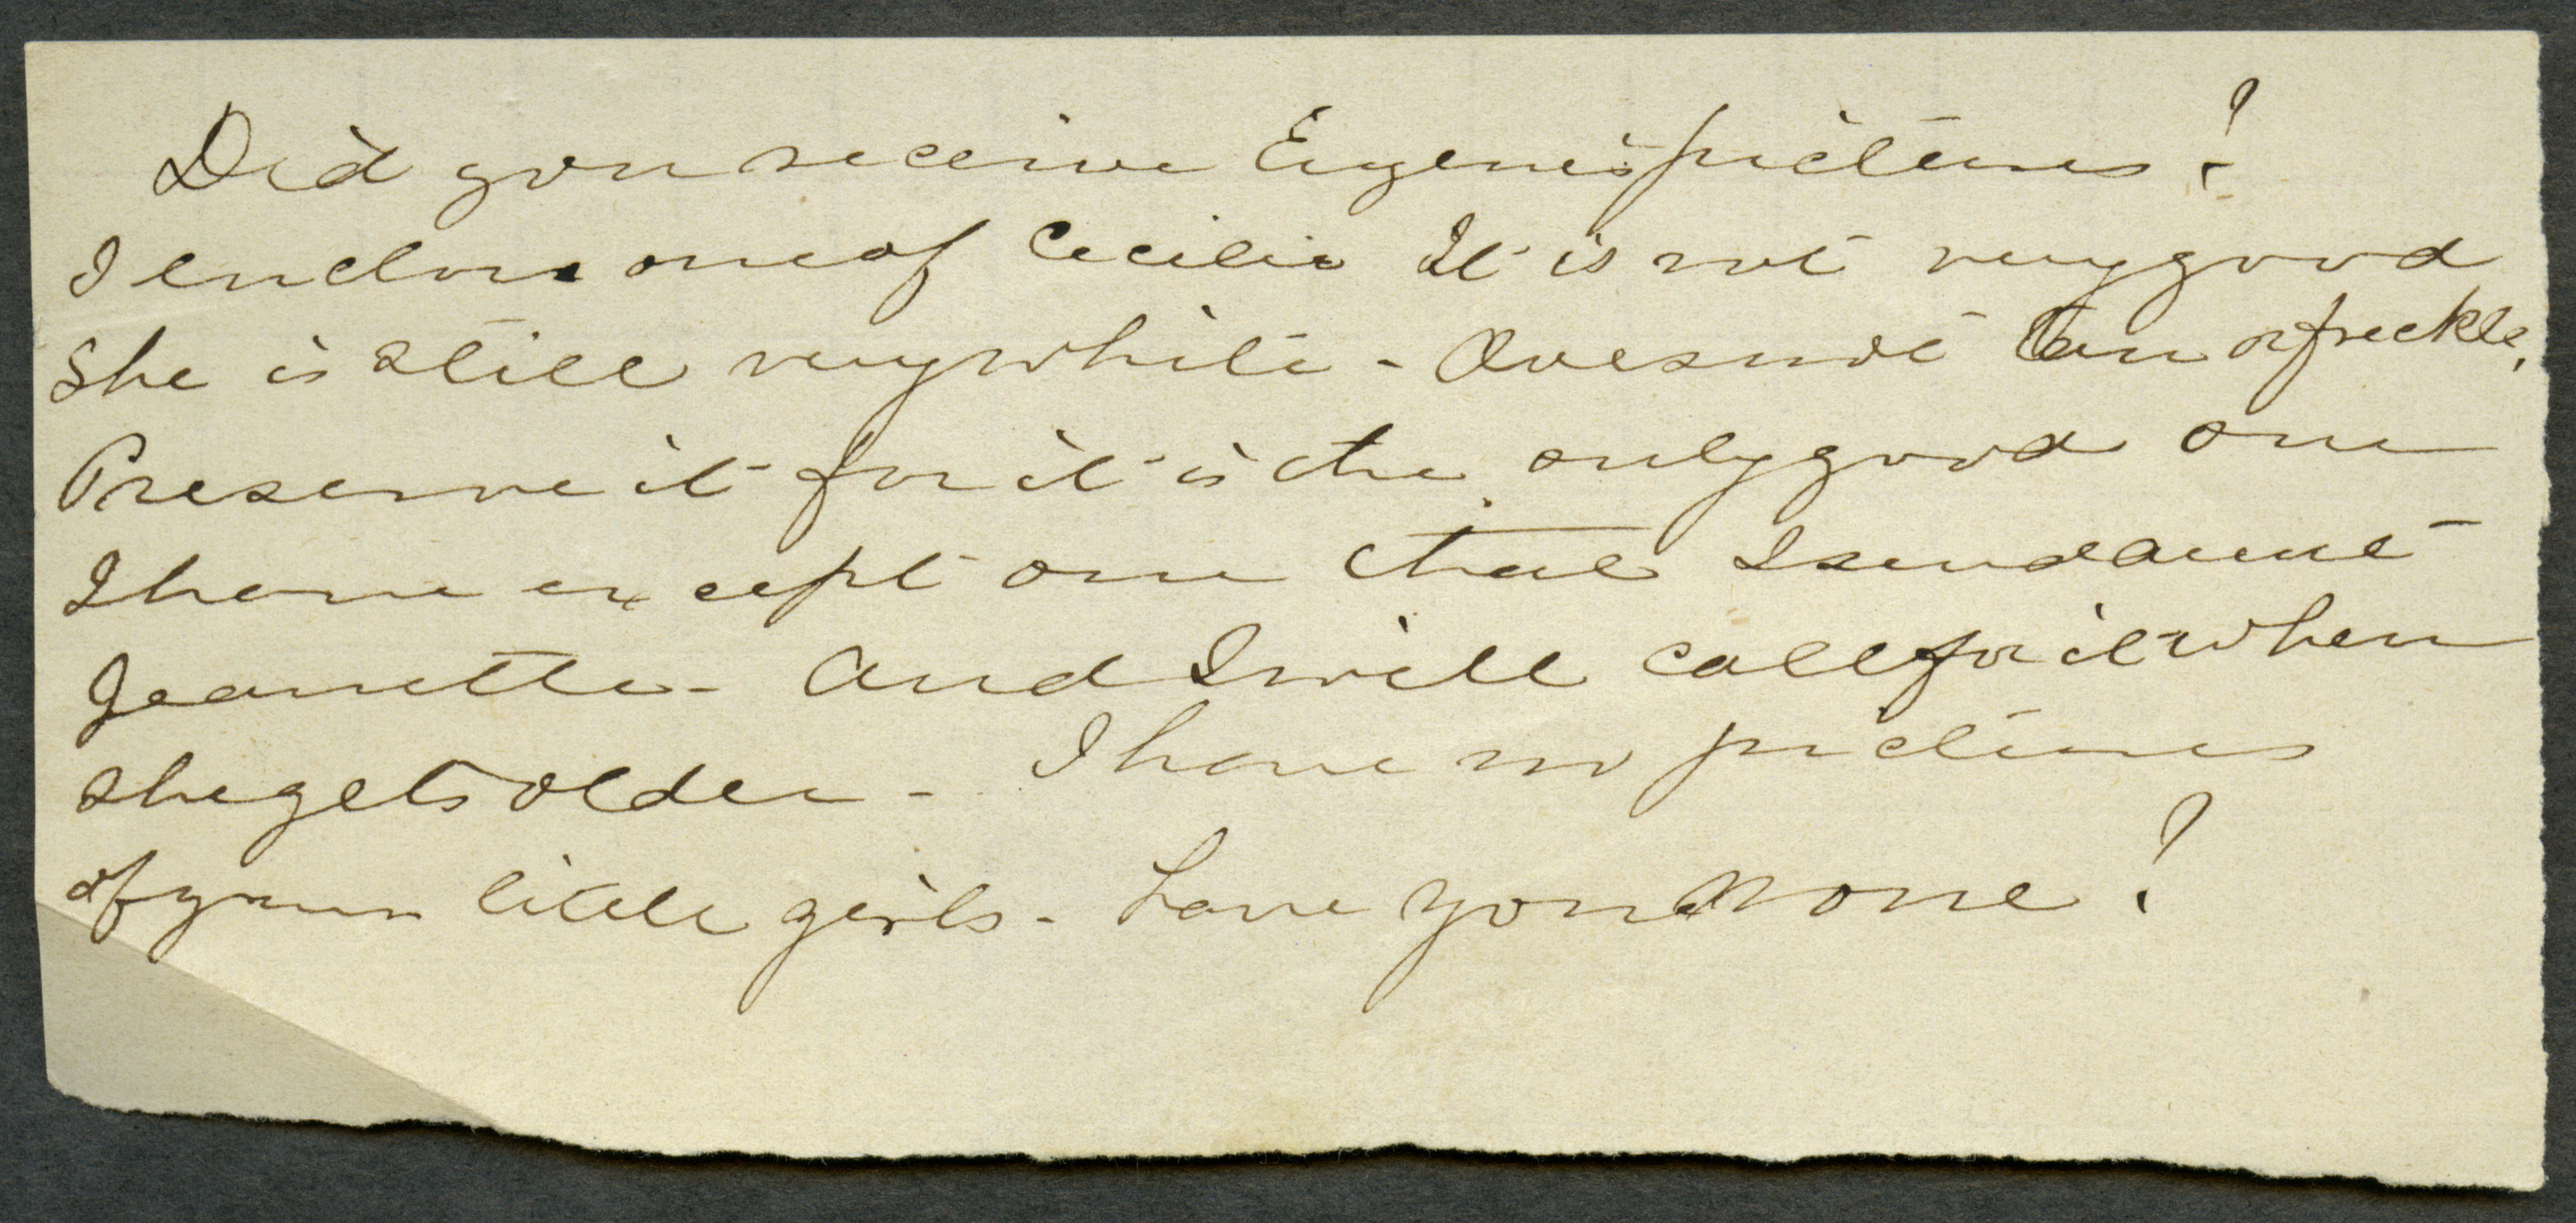 Did you receive Eugene's pictures?
I enclose one of Cecilia It is not very good
She is still very white - Does not tan or freckle.
Preserve it for it is the only good one
I have except one that I send aunt
Jeanette - And I will call for it when
she gets older - I have no pictures
of your little girls - have you none?